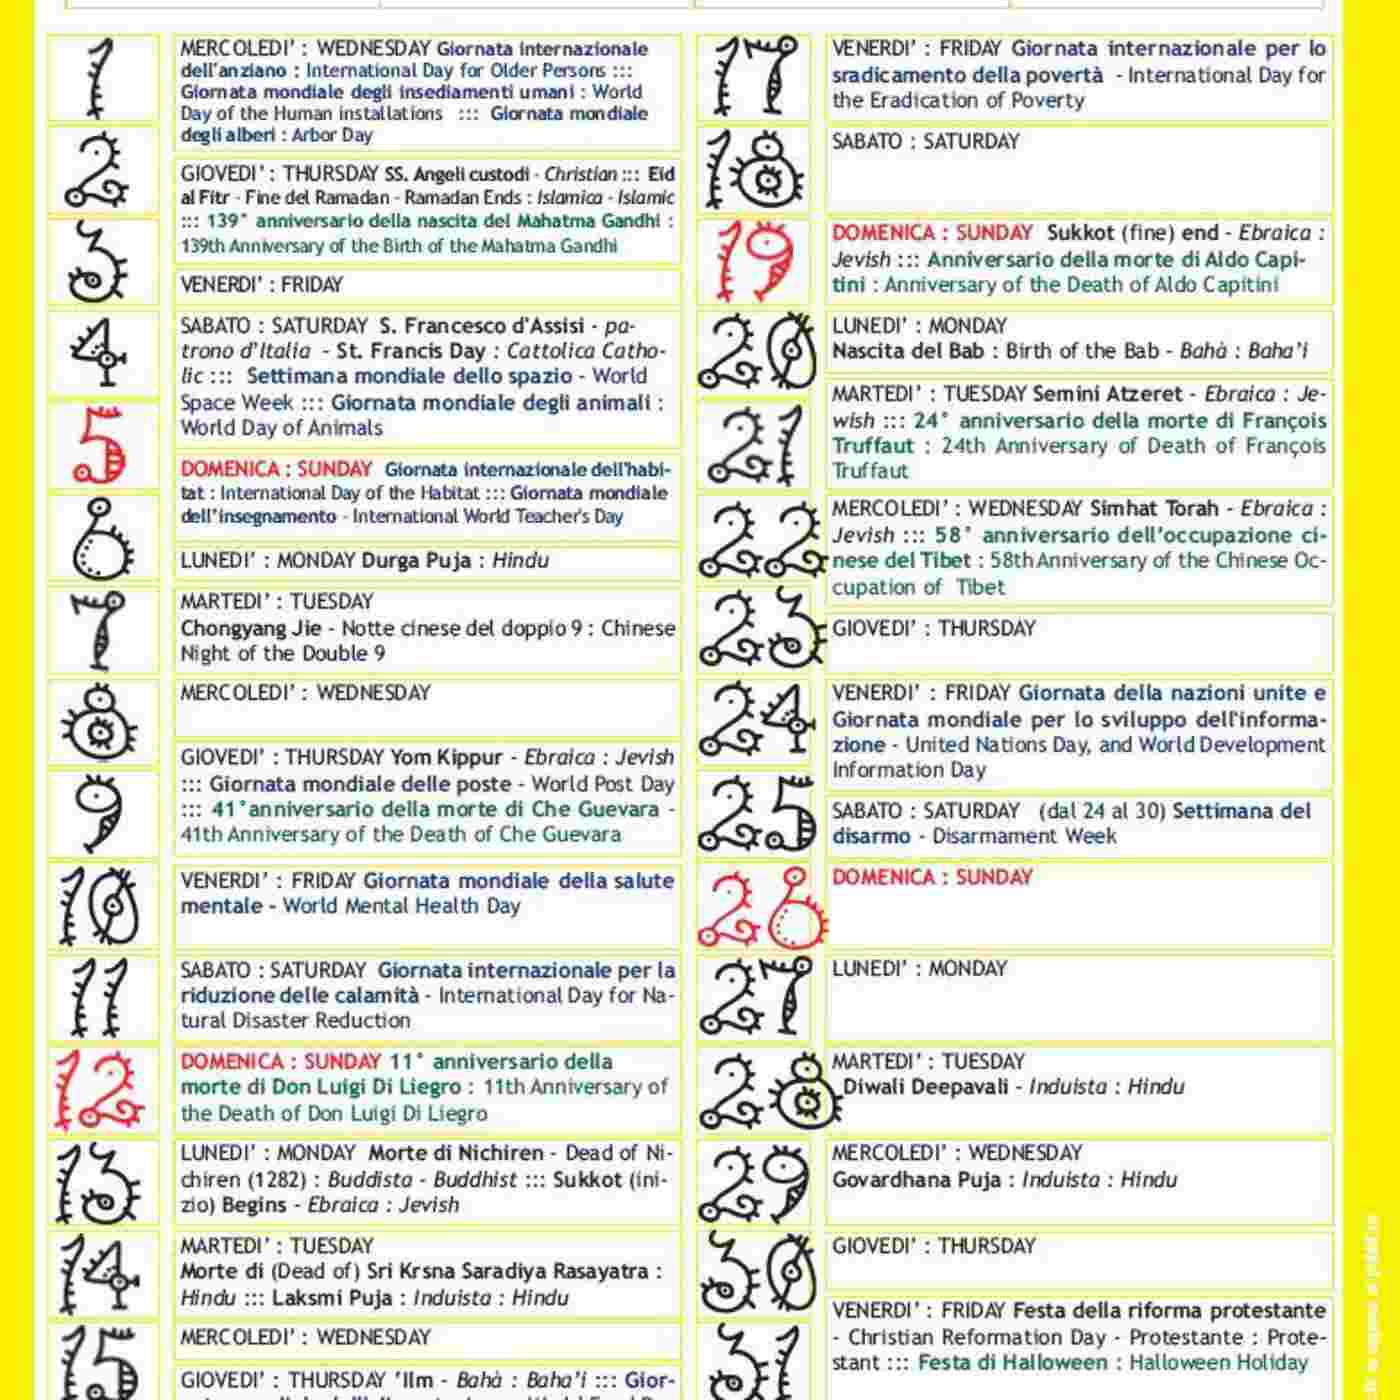 1
MERCOLEDI' : WEDNESDAY Giornata internazionale
dell'anziano : International Day for Older Persons :::
Giornata mondiale degli insediamenti umani : World
Day of the Human installations ::: Giornata mondiale
degli alberi : Arbor Day
2
GIOVEDI' : THURSDAY SS. Angeli custodi - Christian ::: Eid
al Fitr - Fine del Ramadan - Ramadan Ends : Islamica - Islamic
::: 139° anniversario della nascita del Mahatma Gandhi :
139th Anniversary of the Birth of the Mahatma Gandhi
3
VENERDI' : FRIDAY
4
SABATO : SATURDAY S. Francesco d'Assisi - pa-
trono d'Italia - St. Francis Day : Cattolica Catho-
lic ::: Settimana mondiale dello spazio - World
Space Week ::: Giornata mondiale degli animali :
World Day of Animals
5
DOMENICA : SUNDAY Giornata internazionale dell'habi-
tat : International Day of the Habitat ::: Giornata mondiale
dell'insegnamento - International World Teacher's Day
6
LUNEDI' : MONDAY Durga Puja : Hindu
7
MARTEDI' : TUESDAY
Chongyang Jie - Notte cinese del doppio 9 : Chinese
Night of the Double 9
8
MERCOLEDI' : WEDNESDAY
9
GIOVEDI' : THURSDAY Yom Kippur - Ebraica : Jevish
::: Giornata mondiale delle poste - World Post Day
::: 41°anniversario della morte di Che Guevara -
41th Anniversary of the Death of Che Guevara
10
VENERDI' : FRIDAY Giornata mondiale della salute
mentale - World Mental Health Day
11
SABATO : SATURDAY Giornata internazionale per la
riduzione delle calamità - International Day for Na-
tural Disaster Reduction
12
DOMENICA : SUNDAY 11° anniversario della
morte di Don Luigi Di Liegro : 11th Anniversary of
the Death of Don Luigi Di Liegro
13
LUNEDI' : MONDAY Morte di Nichiren - Dead of Ni-
chiren (1282) : Buddista - Buddhist ::: Sukkot (ini-
zio) Begins - Ebraica : Jevish
14
MARTEDI' : TUESDAY
Morte di (Dead of) Sri Krsna Saradiya Rasayatra :
Hindu ::: Laksmi Puja : Induista : Hindu
15
MERCOLEDI' : WEDNESDAY
GIOVEDI' : THURSDAY 'Ilm - Bahà : Baha'i ::: Gior-
17
VENERDI' : FRIDAY Giornata internazionale per lo
sradicamento della povertà - International Day for
the Eradication of Poverty
18
SABATO : SATURDAY
19
DOMENICA : SUNDAY Sukkot (fine) end - Ebraica :
Jevish ::: Anniversario della morte di Aldo Capi-
tini : Anniversary of the Death of Aldo Capitini
20
LUNEDI' : MONDAY
Nascita del Bab : Birth of the Bab - Bahà : Baha'i
21
MARTEDI' : TUESDAY Semini Atzeret - Ebraica : Je-
wish ::: 24° anniversario della morte di François
Truffaut : 24th Anniversary of Death of François
Truffaut
22
MERCOLEDI' : WEDNESDAY Simhat Torah - Ebraica :
Jevish ::: 58° anniversario dell'occupazione ci-
nese del Tibet : 58th Anniversary of the Chinese Oc-
cupation of Tibet
23
GIOVEDI' : THURSDAY
24
VENERDI' : FRIDAY Giornata della nazioni unite e
Giornata mondiale per lo sviluppo dell'informa-
zione - United Nations Day, and World Development
Information Day
25
SABATO : SATURDAY (dal 24 al 30) Settimana del
disarmo - Disarmament Week
26
DOMENICA : SUNDAY
27
LUNEDI' : MONDAY
28
MARTEDI' : TUESDAY
Diwali Deepavali - Induista : Hindu
29
MERCOLEDI' : WEDNESDAY
Govardhana Puja : Induista : Hindu
30
GIOVEDI' : THURSDAY
31
VENERDI' : FRIDAY Festa della riforma protestante
- Christian Reformation Day - Protestante : Prote-
stant ::: Festa di Halloween : Halloween Holiday